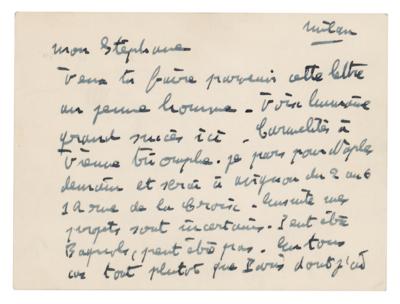 Milan
mon Stéphane
Veux tu faire parvenir cette lettre
au jeune homme - Voix humaine
grand succès ici - Carmélites à
Vienne triomphe. je pars pour Naples
demain et serai à avignon du 2 au 6
rue de la Croix. Ensuite mes
projets sont incertains. Peut être
Bagnols, peut être pas. En tous
cas tout plutot que Paris dont j'ai